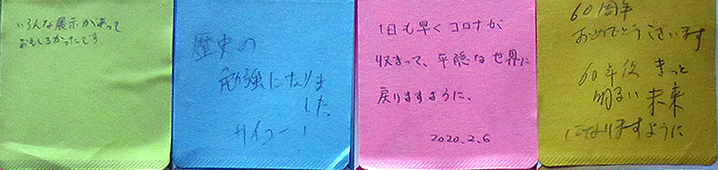 いろんな展示があって
おもしろかったです。
歴史の
勉強になりま
した。
サイコー！
1日も早くコロナが
収まって、平穏な世界に
戻りますように、
2020.2.6
60周年
おめでとうございます
60年後きっと
明るい未来
になりますように